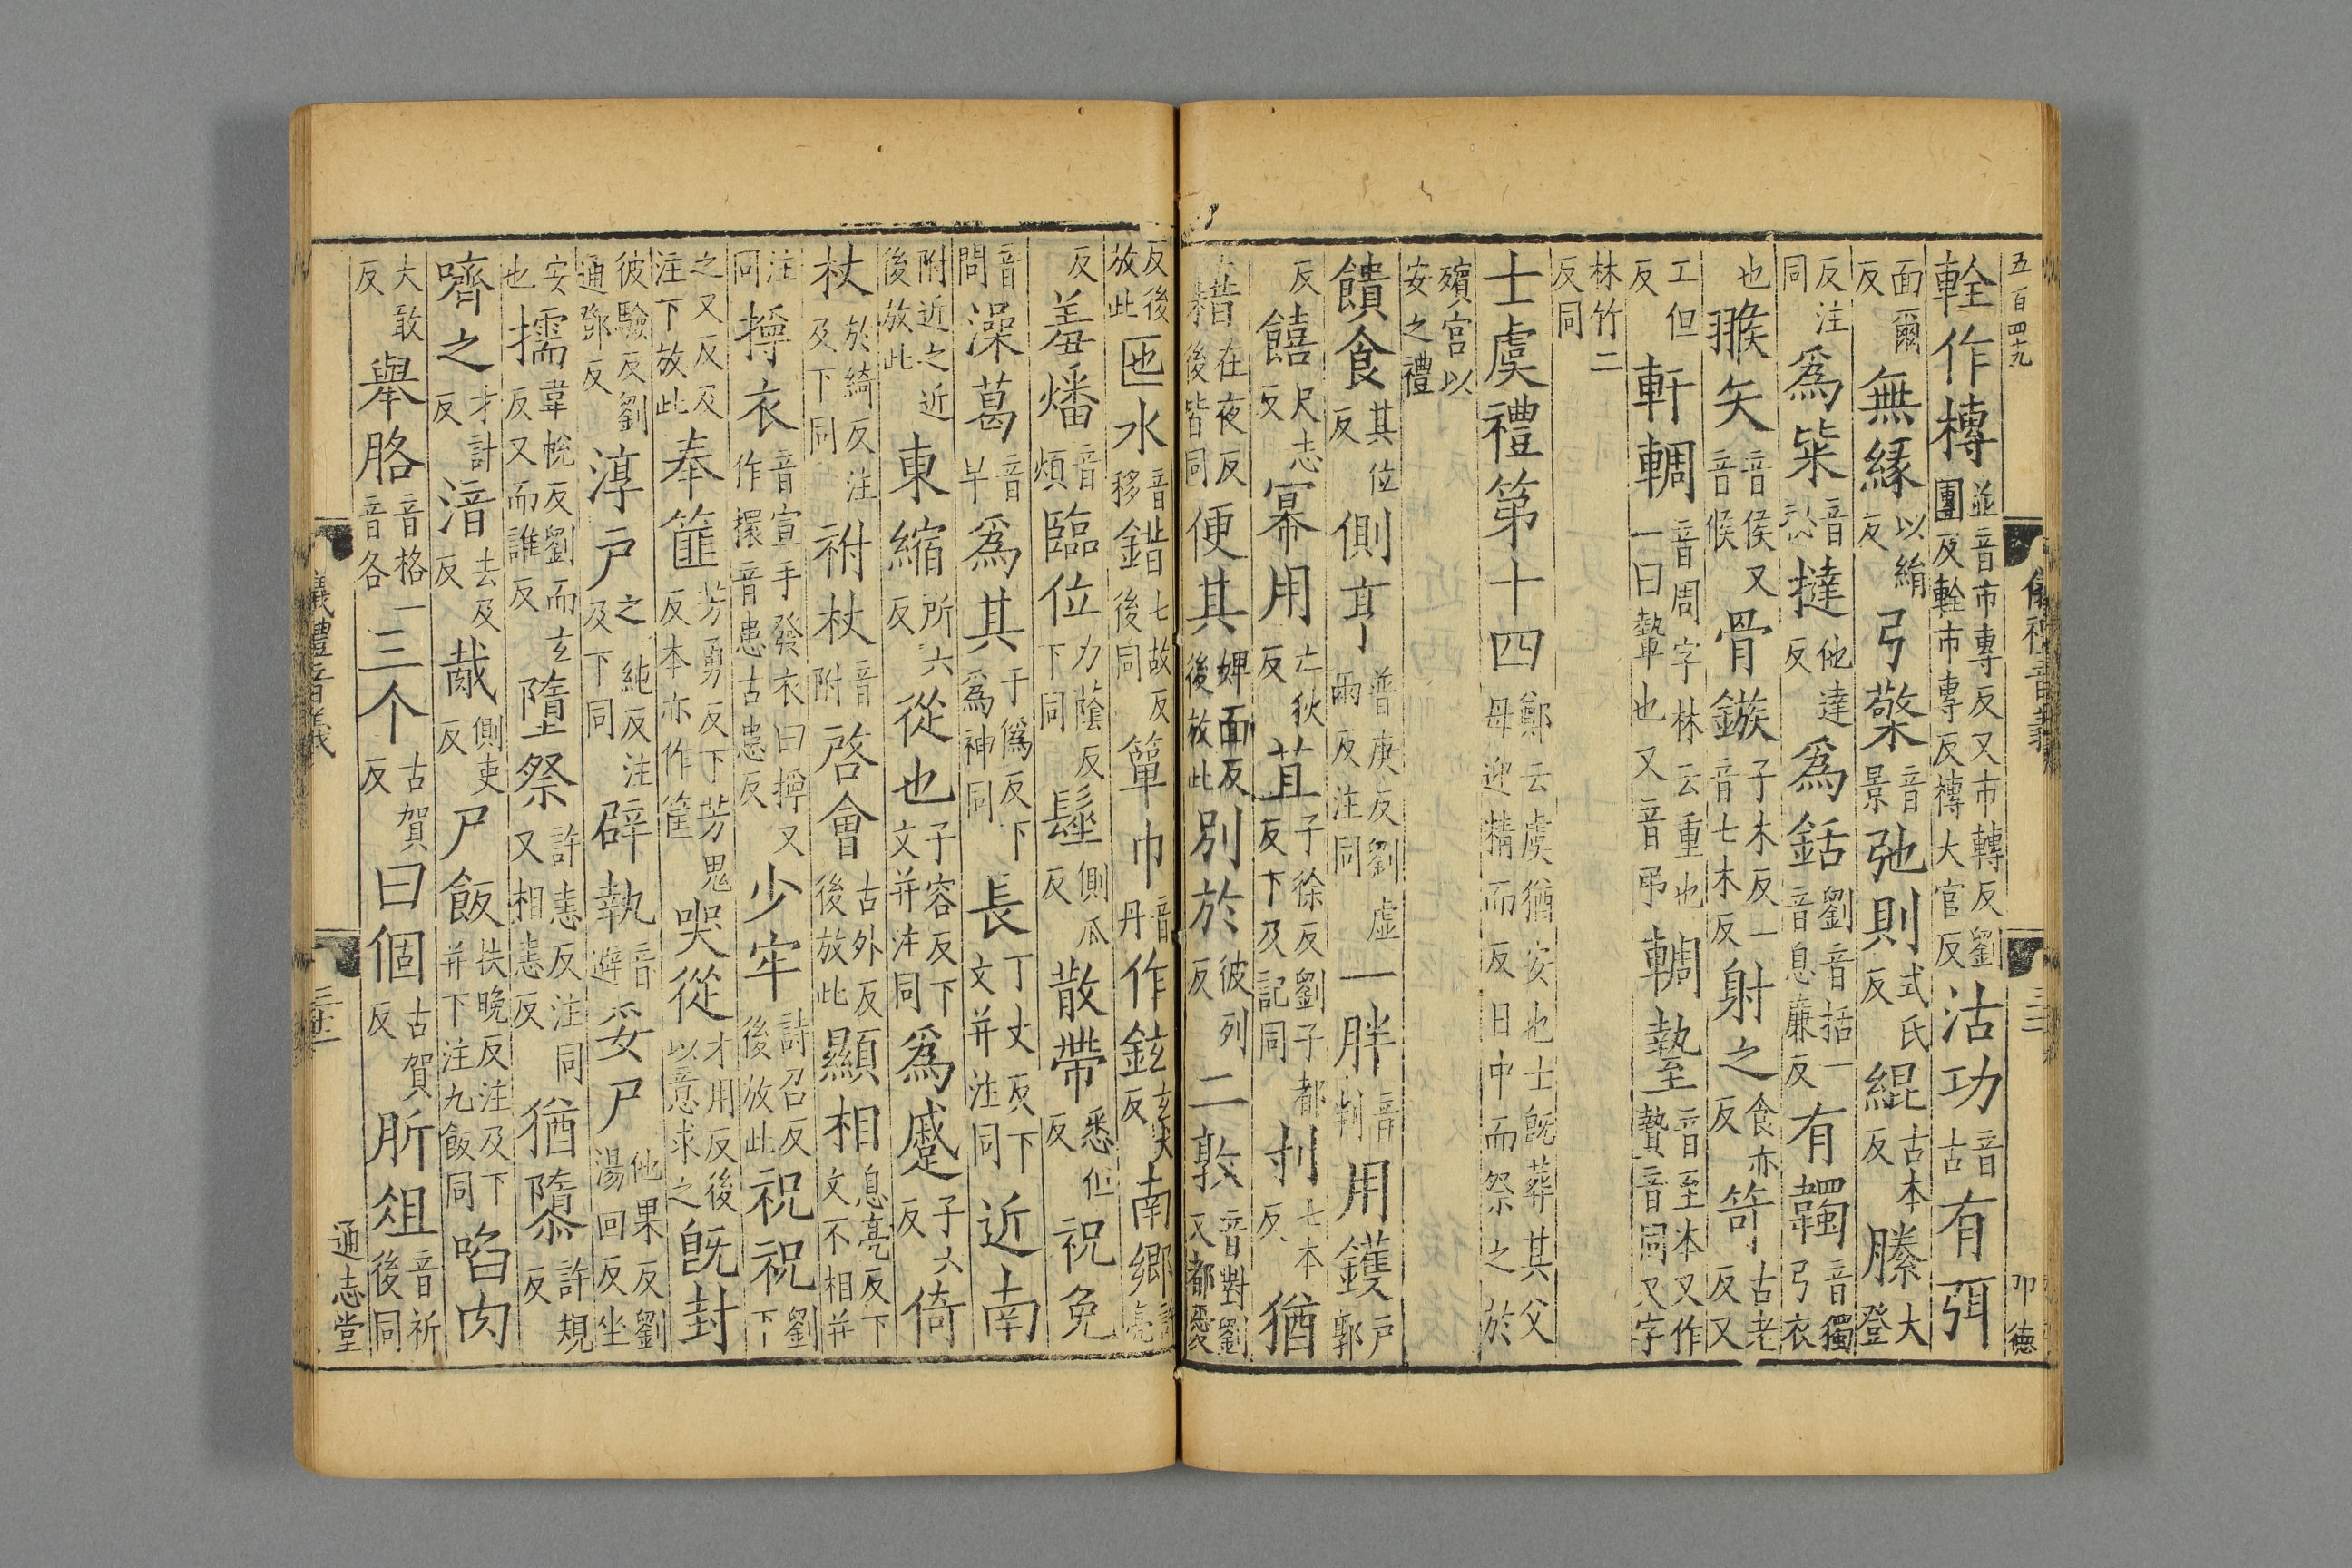 五百四十九 儀禮音義 三二 卬德
輇作槫並音市專反又市轉反劉團反輇市專反槫大官反沽功音古有弭
面爾反無緣以絹反弓檠音景弛則式氏反緄古本反縢大登
反注同為柴音弣撻他達反為銛劉音括一音息廉反有韣音獨弓衣
也猴矢音侯又音候骨鏃子木反一音七木反射之食亦反笴古老反又
工但反軒輖音周字林云重也一曰蟄也又音弔輖墊音至本又作贄音同又字
林竹二反同
士虞禮第十四鄭云虞猶安也士既葬其父母迎精而反日中而祭之於
殯宮以安之禮
饋食其位反側亨普庚反劉虛兩反注同一胖音判用鑊戶郭
反饎尺志反冪用亡狄反苴子徐反劉子都反下及記同刌七本反猶
藉在夜反後皆同便其婢面反後放此別於彼列反二敦音對劉又都愛
反後放此匜水音移錯七故反後同簞巾音丹作鉉玄犬反南鄉許亮
反羞燔音煩臨位力蔭反下同髽側瓜反散帶悉但反祝免
音問澡葛音早為其于偽反下為神同長丁丈反下文并注同近南
附近之近後放此東縮所六反從也子容反下文并注同為蹙子六反倚
杖於綺反注及下同祔杖音附啓會古外反後放此顯相息亮反下文不相并
注同揎衣音宣手發衣曰揎又作擐音患古患反少牢詩召反後放此祝祝劉下
之又反及注下放此奉篚芳勇反下芳鬼反本亦作篚哭從才用反後以意求之既封
彼驗反劉逋鄧反淳尸之純反注及下同辟執音避妥尸他果反劉湯回反坐
安也擩韋帨反劉而玄反又而誰反墮祭許恚反注同又相恚反猶隳許規反
嚌之才計反湆去及反胾側吏反尸飯扶晚反注及下并下注九飯同啗肉
大敢反舉胳音格一音各三个古賀反曰個古賀反肵俎音祈後同
儀禮音義 三十二 通志堂